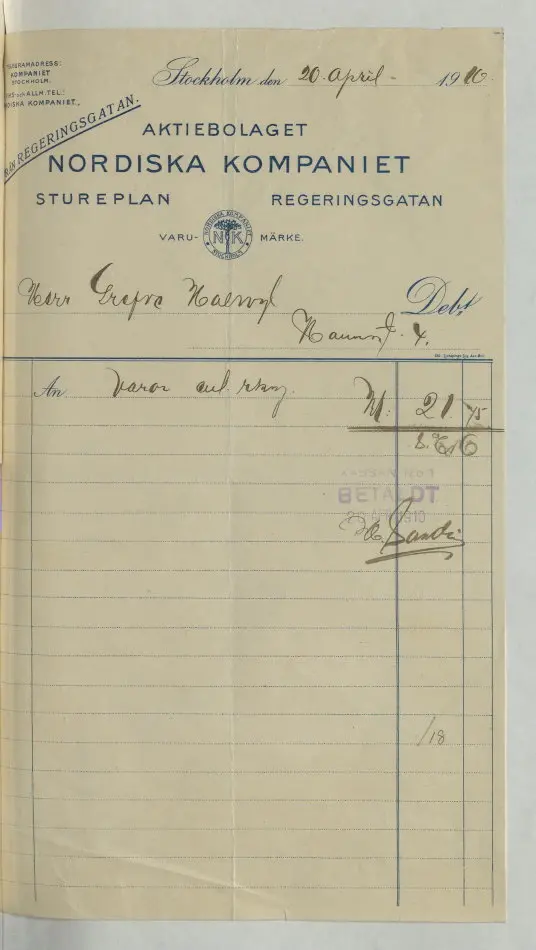 TELEGRAMADRESS:
KOMPANIET
STOCKHOLM.
RIKS- och ALLM. TEL.:
NORDISKA KOMPANIET.
FRÅN REGERINGSGATAN.
Stockholm den 20 April - 1910
AKTIEBOLAGET
NORDISKA KOMPANIET
STUREPLAN REGERINGSGATAN
VARU- MÄRKE.
NORDISKA KOMPANIET
NK
STOCKHOLM
Herr Grefve Hallwyl Debt
Hamng. 4.
An Varor enl. räkng. Kr. 21 75
KASSAN No 1
BETALDT
20 APR 1910
/18